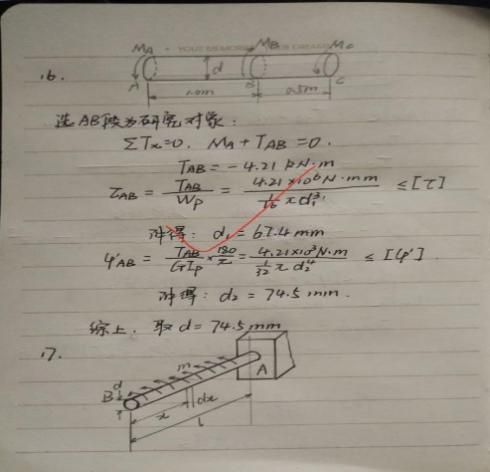 YOUR MEMORIES OUR DREAMS
MA MB MC
16. d
A B C
1.0m 0.5m
选AB段为研究对象:
ΣTx=0, MA+TAB=0.
TAB=-4.21 kN·m
τAB = TAB/Wp = 4.21×10⁶N·mm / (1/16 πd₁³) ≤[τ]
解得: d₁= 67.4 mm
φ'AB = TAB/GIp × 180/π = 4.21×10³N·m / (1/32 πd₂⁴) ≤ [φ']
解得: d₂ = 74.5 mm.
综上, 取d=74.5mm
17.
d m A
B dx
x
l